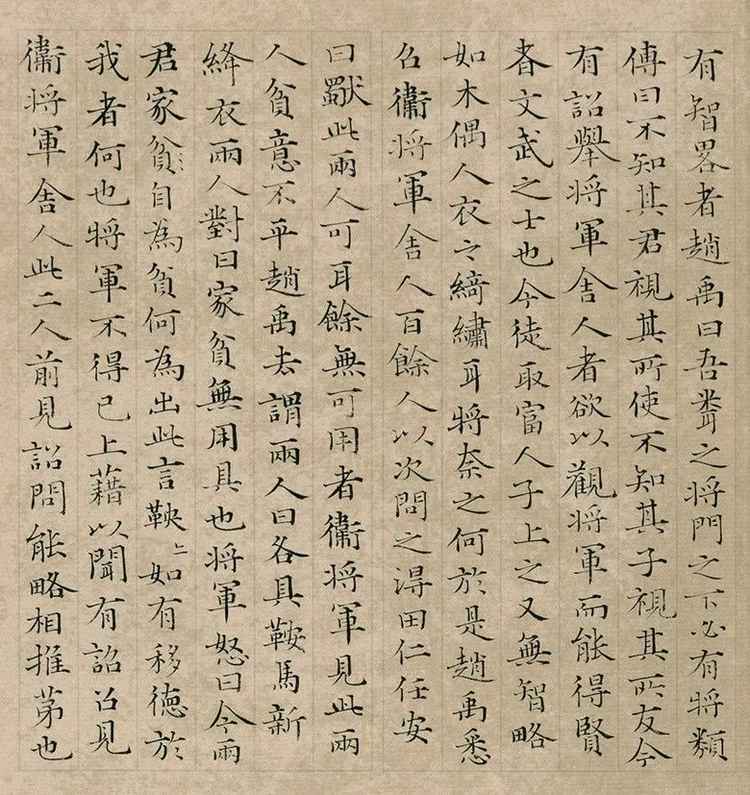 有智畧者趙禹曰吾聞之将門之下必有将類
傳曰不知其君視其所使不知其子視其所友今
有詔舉将軍舍人者欲以觀将軍而能得賢
者文武之士也今徒取富人子上之又無智略
如木偶人衣之綺繡耳将奈之何於是趙禹悉
召衞将軍舍人百餘人以次問之得田仁任安
曰獸此兩人可耳餘無可用者衞将軍見此兩
人貧意不平趙禹去謂兩人曰各具鞍馬新
絳衣兩人對曰家貧無用具也将軍怒曰今兩
君家貧自為貧何為出此言鞅〻如有移徳於
我者何也将軍不得已上藉以聞有詔召見
衞将軍舍人此二人前見詔問能略相推苐也